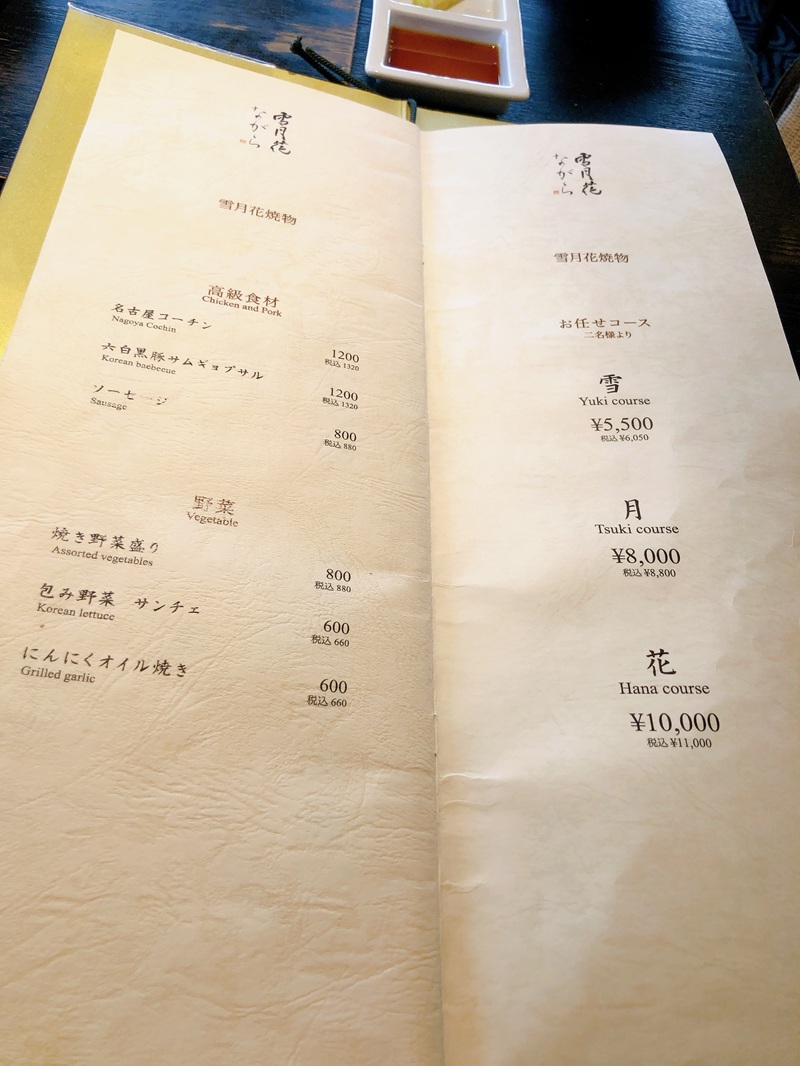 雪月花
ながら
雪月花焼物
高級食材
Chicken and Pork
名古屋コーチン
Nagoya Cochin
1200
税込 1320
六白黒豚サムギョプサル
Korean baebecue
1200
税込 1320
ソーセージ
Sausage
800
税込 880
野菜
Vegetable
焼き野菜盛り
Assorted vegetables
800
税込 880
包み野菜 サンチェ
Korean lettuce
600
税込 660
にんにくオイル焼き
Grilled garlic
600
税込 660
雪月花
ながら
雪月花焼物
お任せコース
二名様より
雪
Yuki course
¥5,500
税込 ¥6,050
月
Tsuki course
¥8,000
税込 ¥8,800
花
Hana course
¥10,000
税込 ¥11,000